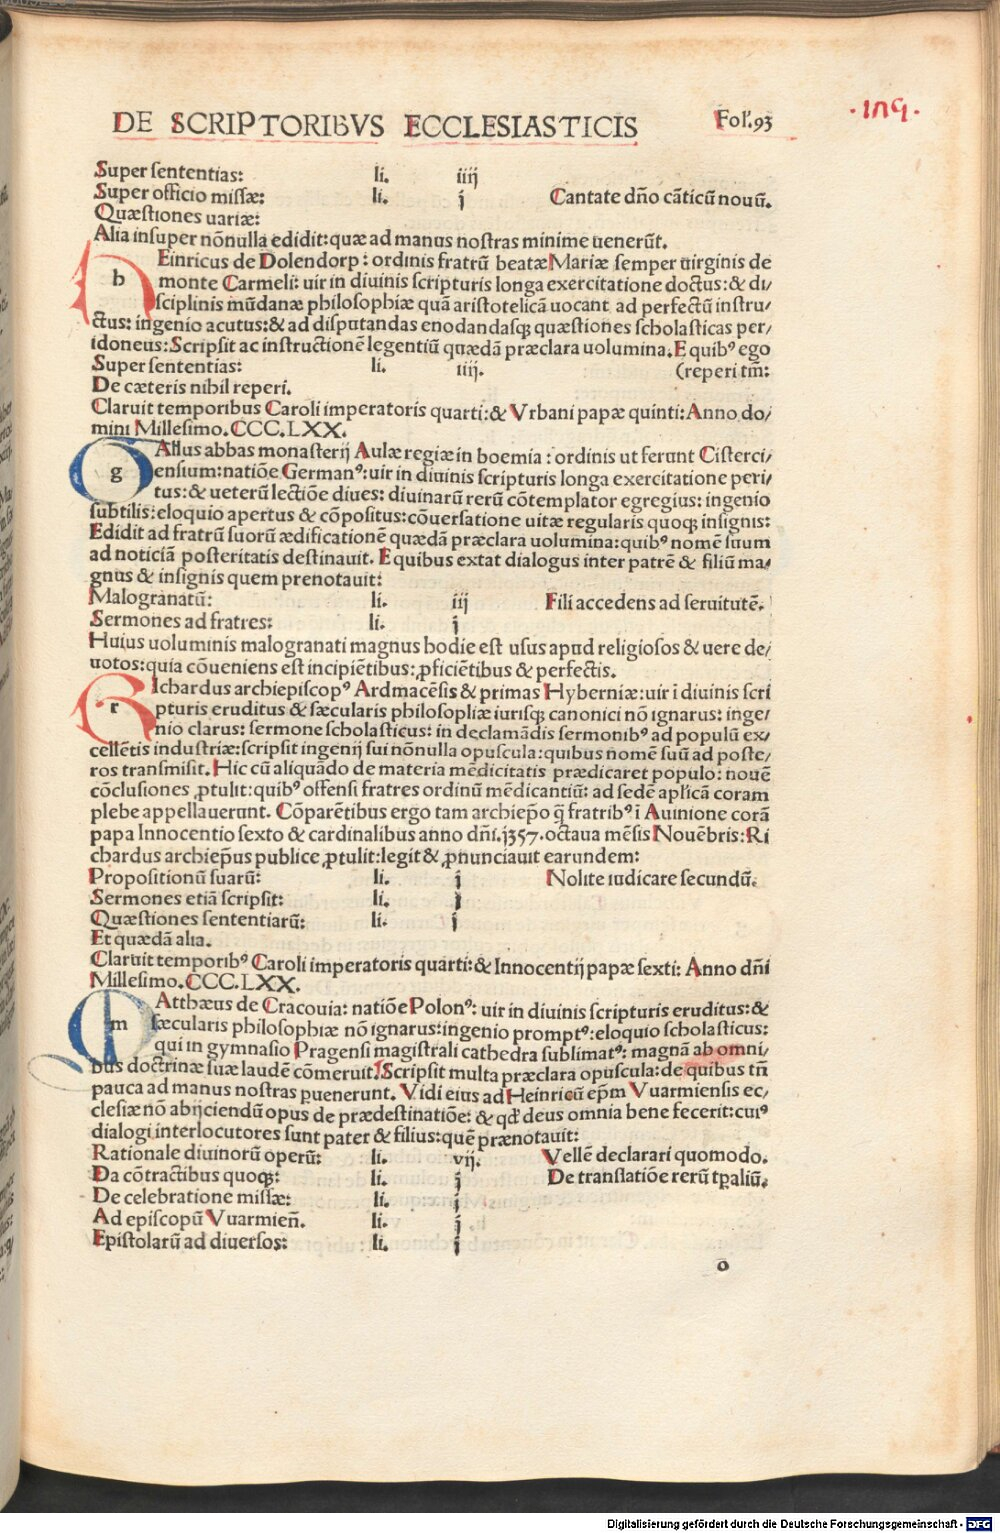 DE SCRIPTORIBVS ECCLESIASTICIS Fol.93
·109·
Super sententias: li. iiij
Super officio missæ: li. j Cantate dño cãticũ nouũ.
Quæstiones uariæ:
Alia insuper nõnulla edidit:quæ ad manus nostras minime uenerũt.
h
Einricus de Dolendorp: ordinis fratrũ beatæ Mariæ semper uirginis de
monte Carmeli: uir in diuinis scripturis longa exercitatione doctus:& di/
sciplinis mũdanæ philosophiæ quã aristotelicã uocant ad perfectũ instru/
ctus: ingenio acutus:& ad disputandas enodandasqꝫ quæstiones scholasticas per/
idoneus:Scripsit ac instructionẽ legentiũ quædã præclara uolumina.E quibꝰ ego
Super sententias: li. iiij. (reperi tm̃:
De cæteris nihil reperi.
Claruit temporibus Caroli imperatoris quarti:& Vrbani papæ quinti: Anno do/
mini Millesimo.CCC.LXX.
g
Allus abbas monasterij Aulæ regiæ in boemia : ordinis ut ferunt Cisterci/
ensium:natiõe Germanꝰ:uir in diuinis scripturis longa exercitatione peri/
tus:& ueterũ lectiõe diues: diuinarũ rerũ cõtemplator egregius: ingenio
subtilis:eloquio apertus & cõpositus:cõuersatione uitæ regularis quoqꝫ insignis:
Edidit ad fratrũ suorũ ædificationẽ quædã præclara uolumina:quibꝰ nomẽ suum
ad noticiã posteritatis destinauit. E quibus extat dialogus inter patrẽ & filiũ ma/
gnus & insignis quem prenotauit:
Malogranatũ: li. iij Fili accedens ad seruitutẽ.
Sermones ad fratres: li. j
Huius uoluminis malogranati magnus hodie est usus apud religiosos & uere de/
uotos:quia cõueniens est incipiẽtibus:ꝓficiẽtibus & perfectis.
r
Ichardus archiepiscopꝰ Ardmacẽsis & primas Hyberniæ:uir ĩ diuinis scri
pturis eruditus & sæcularis philosopliæ iurisqꝫ canonici nõ ignarus: inge/
nio clarus: sermone scholasticus: in declamãdis sermonibꝰ ad populũ ex/
cellẽtis industriæ:scripsit ingenij sui nõnulla opuscula:quibus nomẽ suũ ad poste/
ros transmisit.Hic cũ aliquãdo de materia mẽdicitatis prædicaret populo: nouẽ
cõclusiones ꝓtulit:quibꝰ offensi fratres ordinũ mẽdicantiũ: ad sedẽ aplicã coram
plebe appellauerunt. Cõparẽtibus ergo tam archiep̃o q̃ fratribꝰ ĩ Auinione corã
papa Innocentio sexto & cardinalibus anno dñi.1357.octaua mẽsis Nouẽbris:Ri
chardus archiep̃us publice ꝓtulit:legit & ꝓnunciauit earundem:
Propositionũ suarũ: li. j Nolite iudicare secundũ.
Sermones etiã scripsit: li. j
Quæstiones sententiarũ: li. j
Et quædã alia.
Claruit temporibꝰ Caroli imperatoris quarti:& Innocentij papæ sexti: Anno dñi
Millesimo.CCC.LXX.
m
Atthæus de Cracouia: natiõe Polonꝰ: uir in diuinis scripturis eruditus:&
sæcularis philosophiæ nõ ignarus:ingenio promptꝰ:eloquio scholasticus:
qui in gymnasio Pragensi magistrali cathedra sublimatꝰ: magnã ab omni/
bus doctrinæ suæ laudẽ cõmeruit.Scripsit multa præclara opuscula:de quibus tñ
pauca ad manus nostras puenerunt. Vidi eius ad Heinricũ ep̃m Vuarmiensis ec/
clesiæ nõ abijciendũ opus de prædestinatiõe: & qđ deus omnia bene fecerit:cuiꝰ
dialogi interlocutores sunt pater & filius:quẽ prænotauit:
Rationale diuinorũ operũ: li. vij. Vellẽ declarari quomodo.
Da cõtractibus quoqꝫ: li. j De translatiõe rerũ tp̃aliũ.
De celebratione missæ: li. j
Ad episcopũ Vuarmieñ. li. j
Epistolarũ ad diuersos: li. j
o
Digitalisierung gefördert durch die Deutsche Forschungsgemeinschaft - DFG